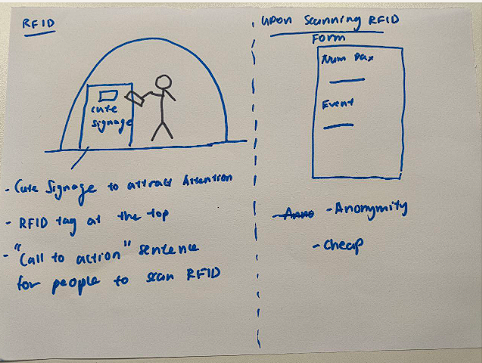 RFID
cute
signage
- Cute Signage to attract Attention
- RFID tag at the top
- "Call to action" sentence
for people to scan RFID
Upon Scanning RFID
Form
Num Pax
Event
- Anonymity
- Cheap